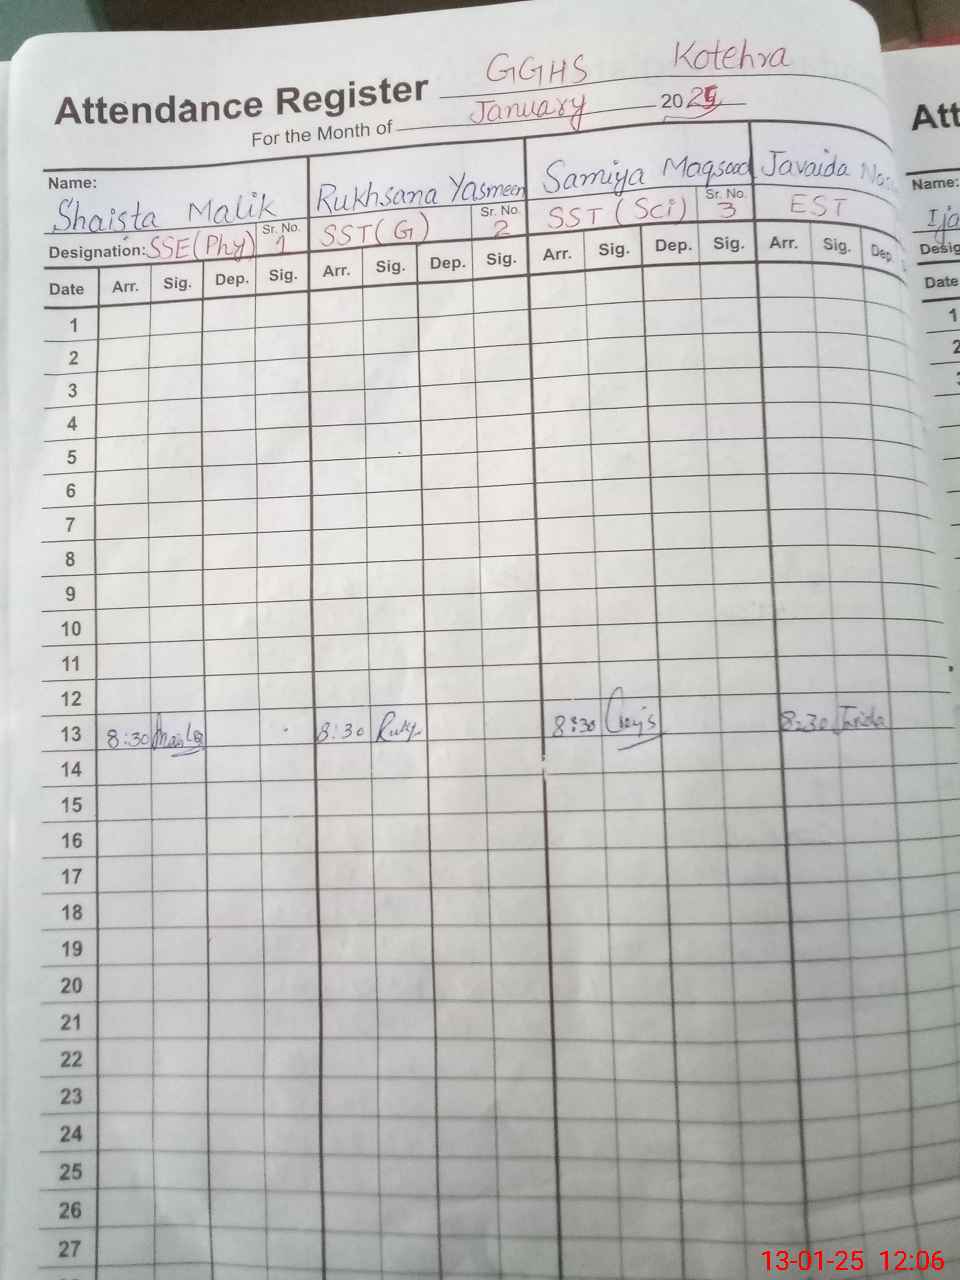 GGHS Kotehra
Attendance Register
For the Month of January 2025
Name: Shaista Malik Rukhsana Yasmeen Samiya Maqsood Javaida
Designation: SSE (Phy) Sr. No. 1 SST (G) Sr. No. 2 SST (Sci) Sr. No. 3 EST
Date Arr. Sig. Dep. Sig. Arr. Sig. Dep. Sig. Arr. Sig. Dep. Sig. Arr. Sig. Dep.
1
2
3
4
5
6
7
8
9
10
11
12
13 8:30 8:30 8:30 8:30
14
15
16
17
18
19
20
21
22
23
24
25
26
27
Att
Name:
Ija
Desig
Date
1
2
13-01-25 12:06